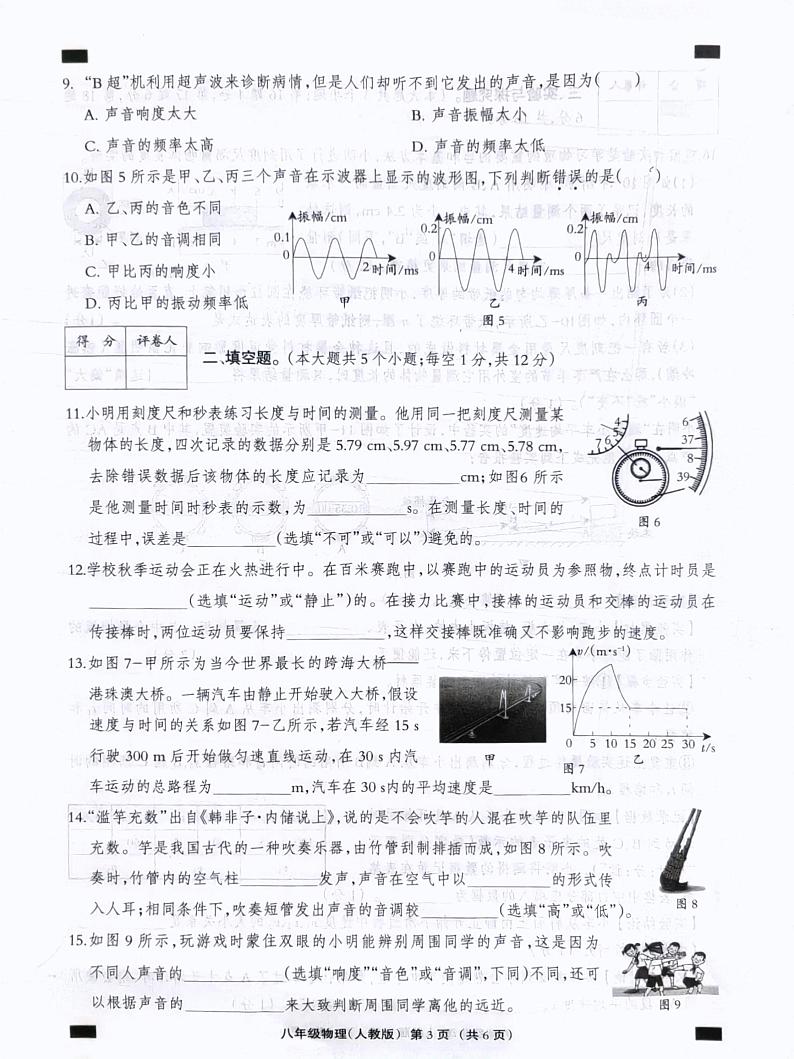 9. “B 超”机利用超声波来诊断病情,但是人们却听不到它发出的声音,是因为(　　)
A. 声音响度太大　　B. 声音振幅太小
C. 声音的频率太高　　D. 声音的频率太低
10.如图 5 所示是甲、乙、丙三个声音在示波器上显示的波形图,下列判断错误的是(　　)
A. 乙、丙的音色不同
B. 甲、乙的音调相同
C. 甲比丙的响度小
D. 丙比甲的振动频率低
振幅/cm
0.1
0
2 时间/ms
甲
振幅/cm
0.2
0
4 时间/ms
乙
振幅/cm
0.2
0
4 时间/ms
丙
图 5
得 分　评卷人
二、填空题。(本大题共 5 个小题;每空 1 分,共 12 分)
11.小明用刻度尺和秒表练习长度与时间的测量。他用同一把刻度尺测量某
物体的长度,四次记录的数据分别是 5.79 cm、5.97 cm、5.77 cm、5.78 cm,
去除错误数据后该物体的长度应记录为________cm;如图6 所示
是他测量时间时秒表的示数,为________s。在测量长度、时间的
过程中,误差是________(选填“不可”或“可以”)避免的。
6
37
8
39
图 6
12.学校秋季运动会正在火热进行中。在百米赛跑中,以赛跑中的运动员为参照物,终点计时员是
________(选填“运动”或“静止”)的。在接力比赛中,接棒的运动员和交棒的运动员在
传接棒时,两位运动员要保持________,这样交接棒既准确又不影响跑步的速度。
13.如图 7-甲所示为当今世界最长的跨海大桥——
港珠澳大桥。一辆汽车由静止开始驶入大桥,假设
速度与时间的关系如图 7-乙所示,若汽车经 15 s
行驶 300 m 后开始做匀速直线运动,在 30 s 内汽
车运动的总路程为________m,汽车在 30 s内的平均速度是________km/h。
甲
v/(m·s⁻¹)
20
15
0 5 10 15 20 25 30 t/s
乙
图 7
14.“滥竽充数”出自《韩非子·内储说上》,说的是不会吹竽的人混在吹竽的队伍里
充数。竽是我国古代的一种吹奏乐器,由竹管刮制排插而成,如图 8 所示。吹
奏时,竹管内的空气柱________发声,声音在空气中以________的形式传
入人耳;相同条件下,吹奏短管发出声音的音调较________(选填“高”或“低”)。
图 8
15.如图 9 所示,玩游戏时蒙住双眼的小明能辨别周围同学的声音,这是因为
不同人声音的________(选填“响度”“音色”或“音调”,下同)不同,还可
以根据声音的________来大致判断周围同学离他的远近。
图 9
八年级物理(人教版) 第 3 页 (共 6 页)